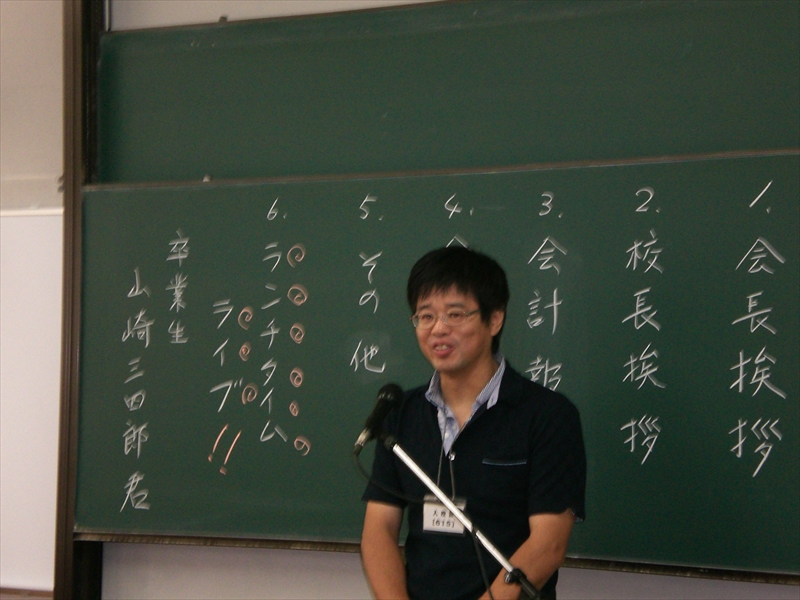 1. 会長挨拶
2. 校長挨拶
3. 会計報
4. 会
5. その他
6. ランチタイム
ライブ!!
卒業生
山崎三四郎君